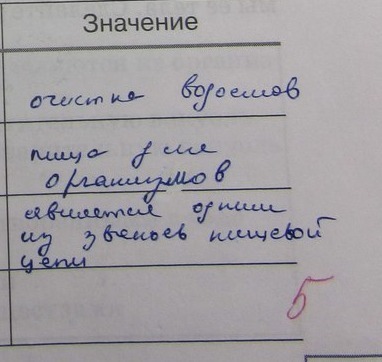 Значение
очистка водоемов
пища для
организмов
является одним
из звеньев пищевой
цепи
5